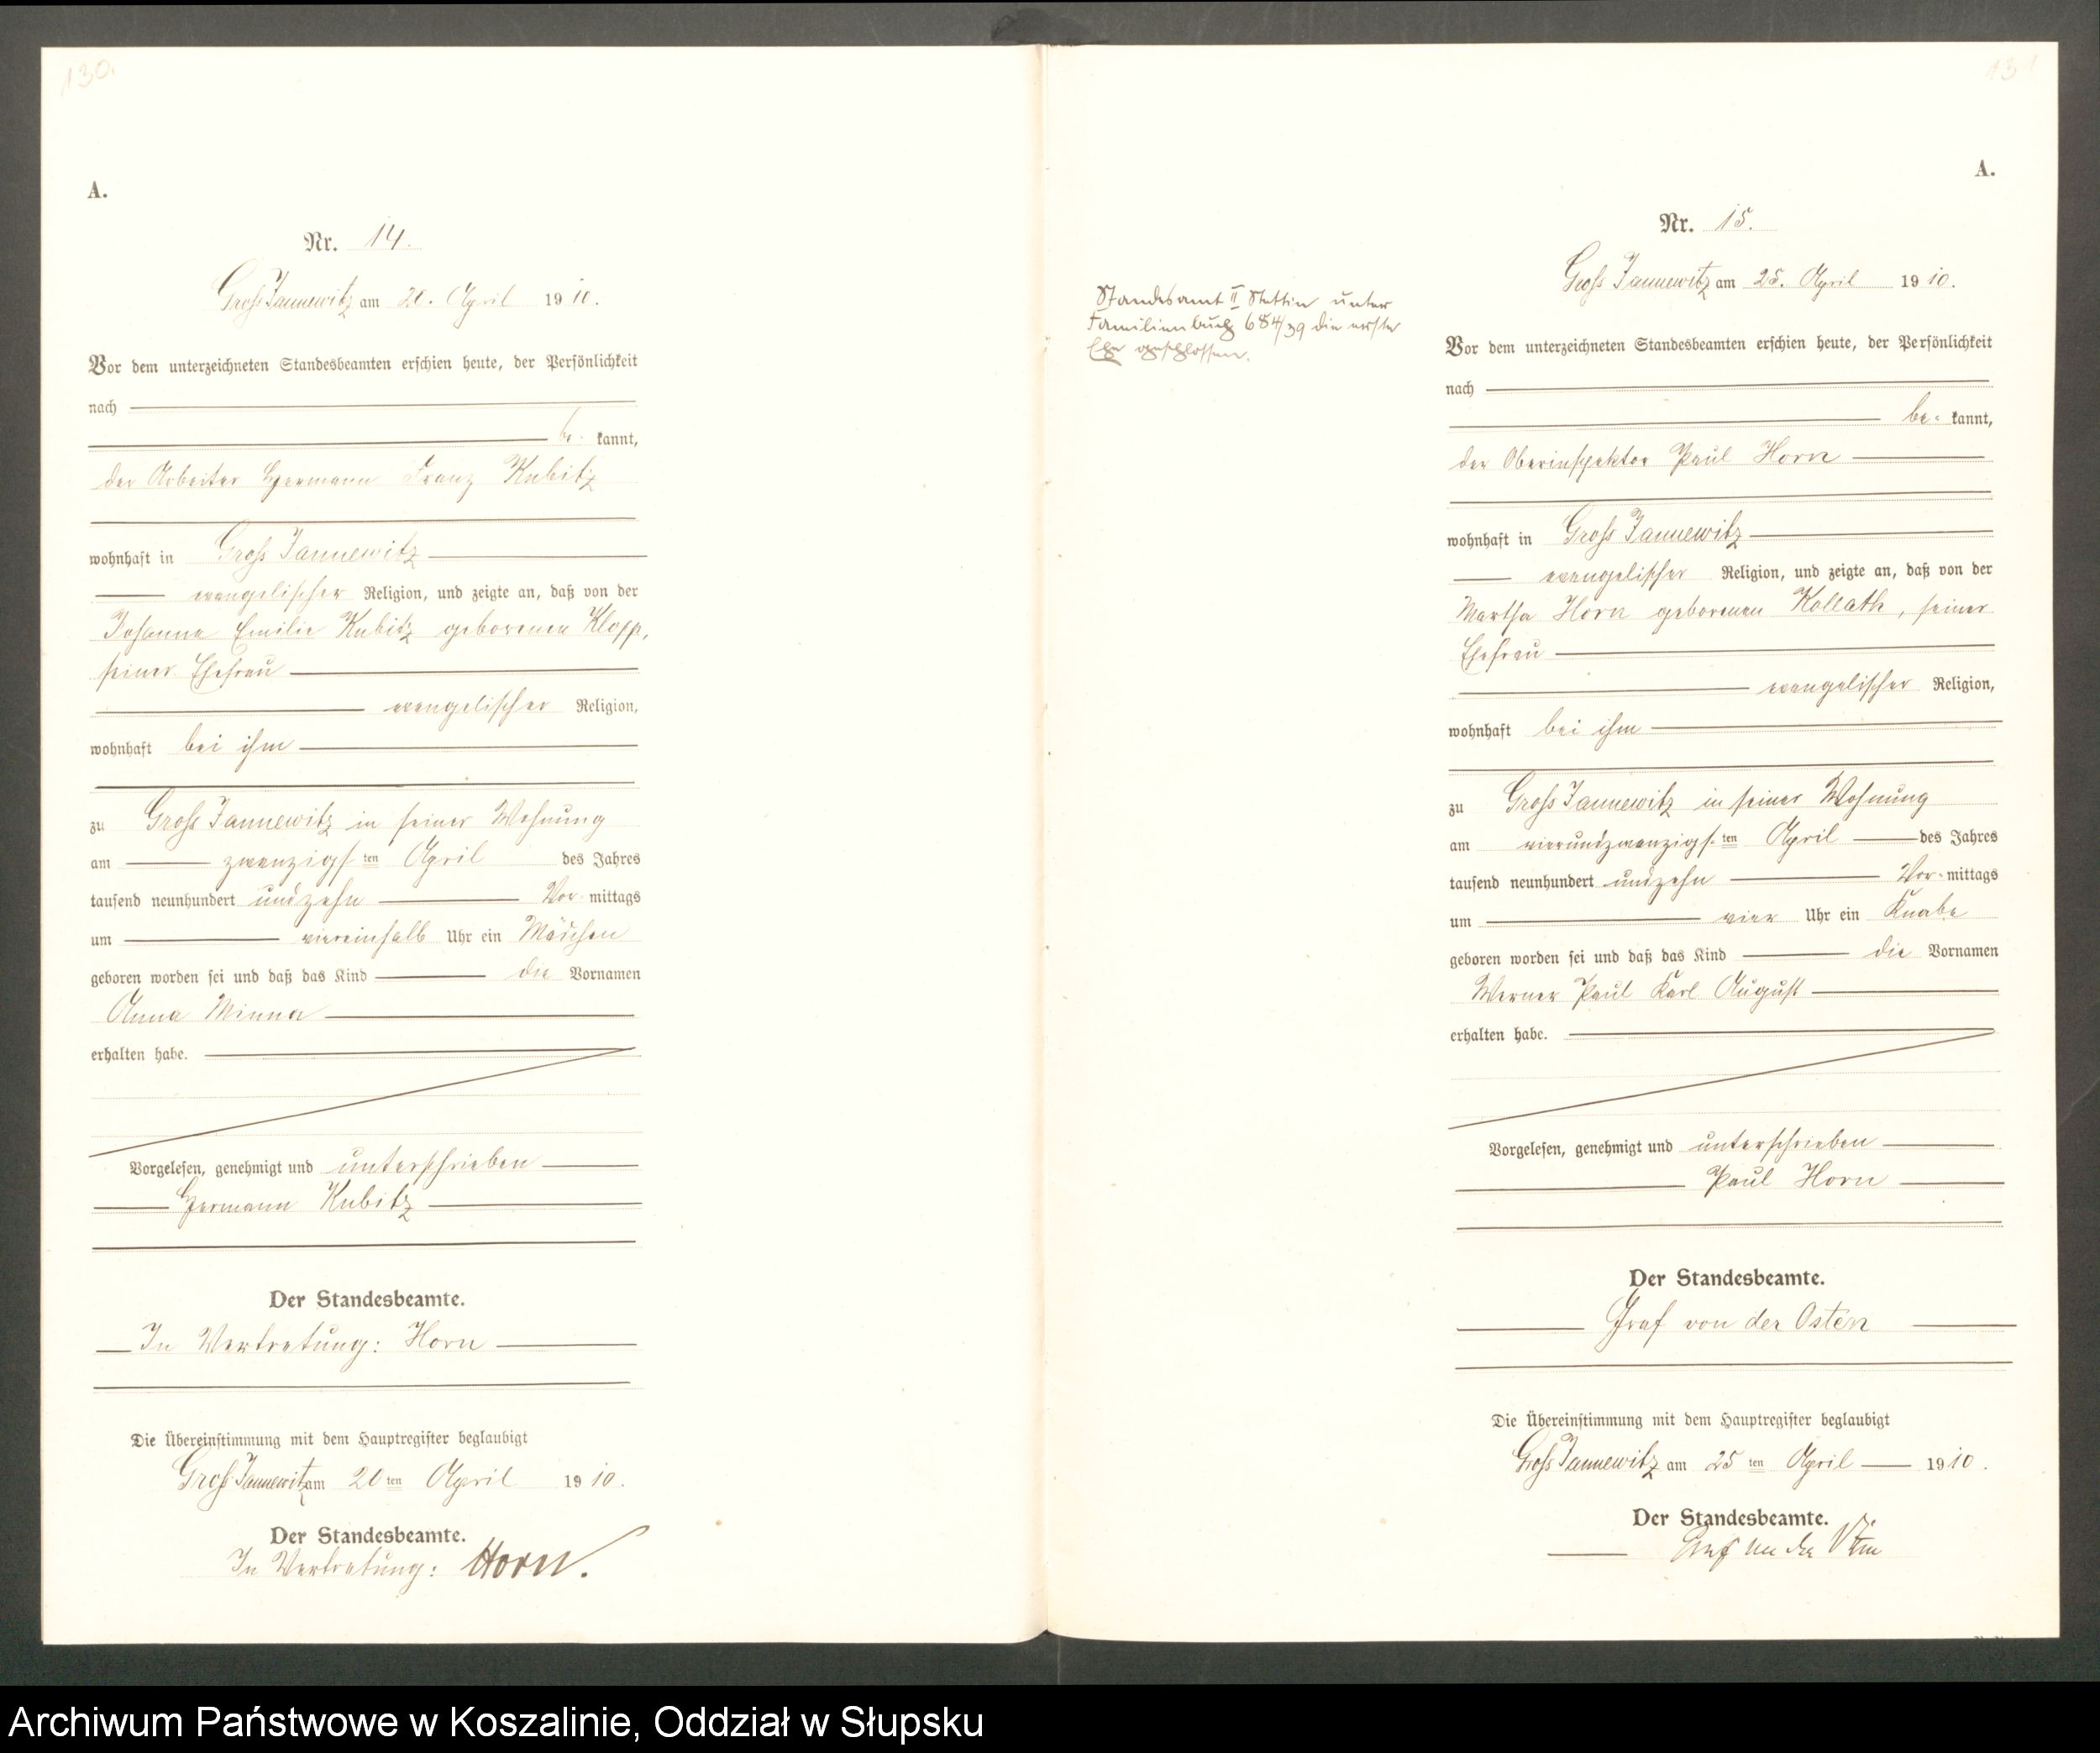 130.
A.
Nr. 14.
Gross Jannewitz am 20. April 1910.
Vor dem unterzeichneten Standesbeamten erschien heute, der Persönlichkeit
nach
be- kannt,
der Arbeiter Hermann Franz Kubitz
wohnhaft in Gross Jannewitz
evangelischer Religion, und zeigte an, daß von der
Johanna Emilie Kubitz geborenen Klopp,
seiner Ehefrau
evangelischer Religion,
wohnhaft bei ihm
zu Gross Jannewitz in seiner Wohnung
am zwanzigsten April des Jahres
tausend neunhundert undzehn Vor-mittags
um viereinhalb Uhr ein Mädchen
geboren worden sei und daß das Kind die Vornamen
Anna Minna
erhalten habe.
Vorgelesen, genehmigt und unterschrieben
Hermann Kubitz
Der Standesbeamte.
In Vertretung: Horn
Die Übereinstimmung mit dem Hauptregister beglaubigt
Gross Jannewitz am 20ten April 1910.
Der Standesbeamte.
In Vertretung: Horn.
131
A.
Nr. 15.
Gross Jannewitz am 25. April 1910.
Standesamt II Stettin unter
Familienbuch 684/39 die erste
Ehe geschlossen.
Vor dem unterzeichneten Standesbeamten erschien heute, der Persönlichkeit
nach
be- kannt,
der Oberinspektor Paul Horn
wohnhaft in Gross Jannewitz
evangelischer Religion, und zeigte an, daß von der
Martha Horn geborenen Kollath, seiner
Ehefrau
evangelischer Religion,
wohnhaft bei ihm
zu Gross Jannewitz in seiner Wohnung
am vierundzwanzigsten April des Jahres
tausend neunhundert undzehn Vor-mittags
um vier Uhr ein Knabe
geboren worden sei und daß das Kind die Vornamen
Werner Paul Karl August
erhalten habe.
Vorgelesen, genehmigt und unterschrieben
Paul Horn
Der Standesbeamte.
Graf von der Osten
Die Übereinstimmung mit dem Hauptregister beglaubigt
Gross Jannewitz am 25ten April 1910.
Der Standesbeamte.
Graf von der Osten
Archiwum Państwowe w Koszalinie, Oddział w Słupsku